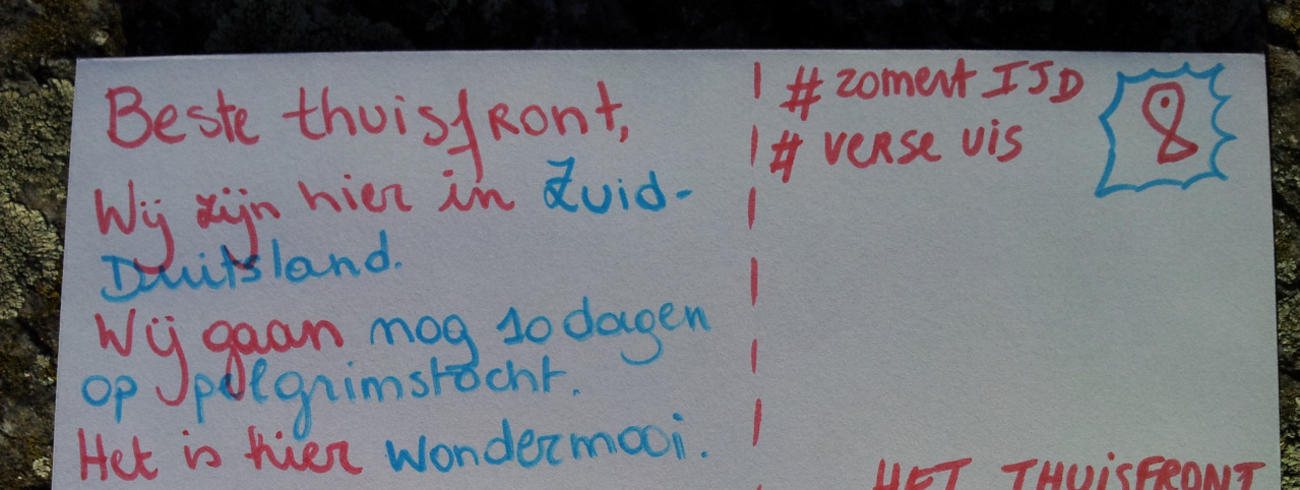 Beste thuisfront,
Wij zijn hier in Zuid-
Duitsland.
Wij gaan nog 10 dagen
op pelgrimstocht.
Het is hier wondermooi.
# zomert IJD
# verse vis
HET THUISFRONT